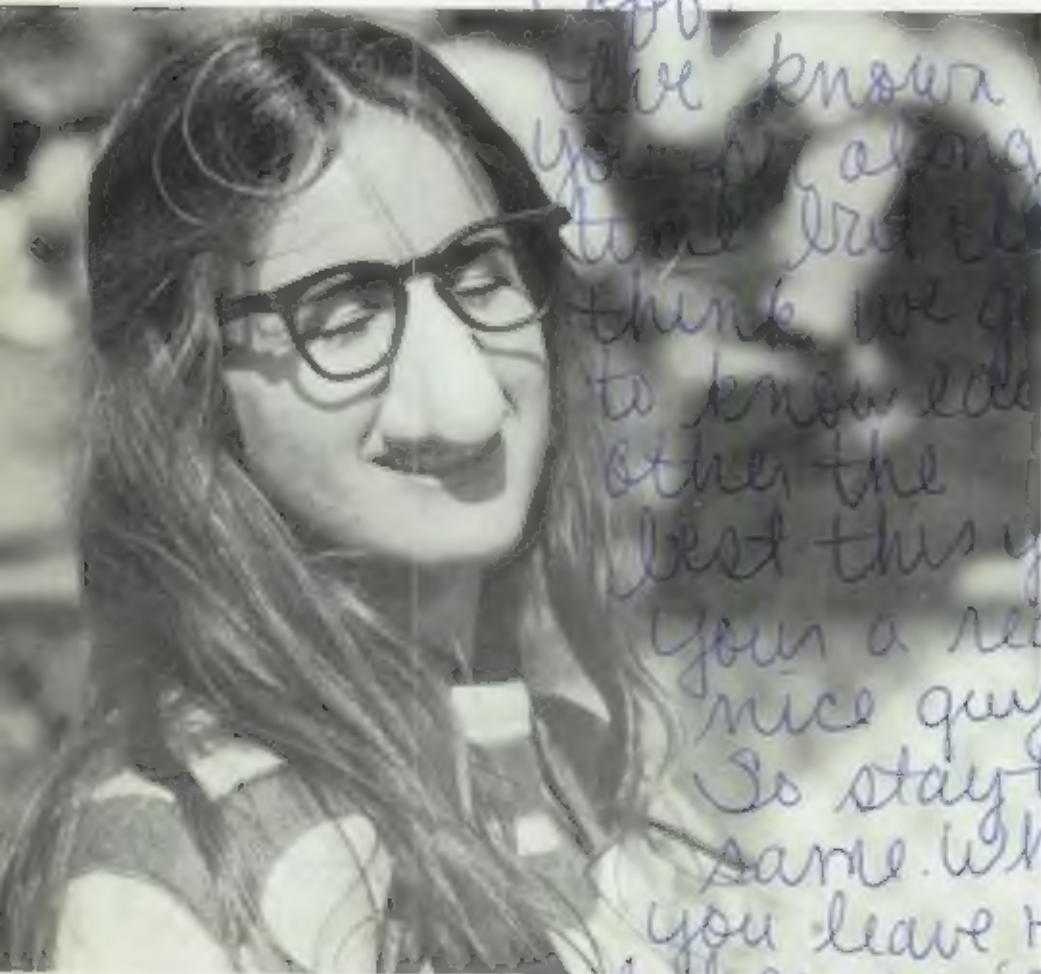 I've known
you for along
time but I
think we g
to know eac
other the
best this y
your a rea
nice guy
So stay t
same. Wh
you leave